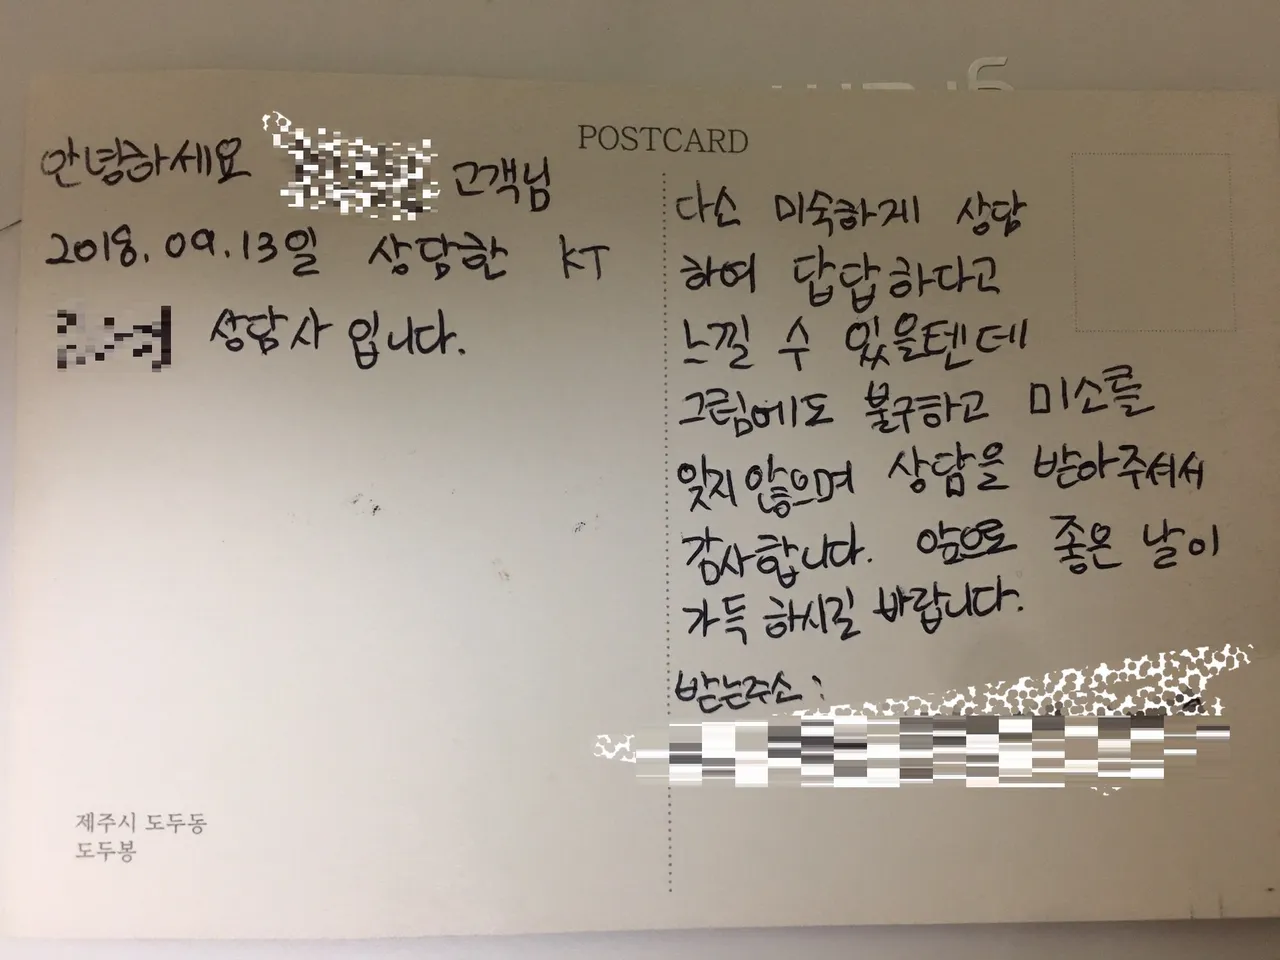 POSTCARD
안녕하세요 고객님
2018. 09. 13일 상담한 KT
상담사 입니다.
다소 미숙하게 상담
하여 답답하다고
느낄 수 있을텐데
그럼에도 불구하고 미소를
잊지 않으며 상담을 받아주셔서
감사합니다. 앞으로 좋은 날이
가득 하시길 바랍니다.
받는주소 :
제주시 도두동
도두봉